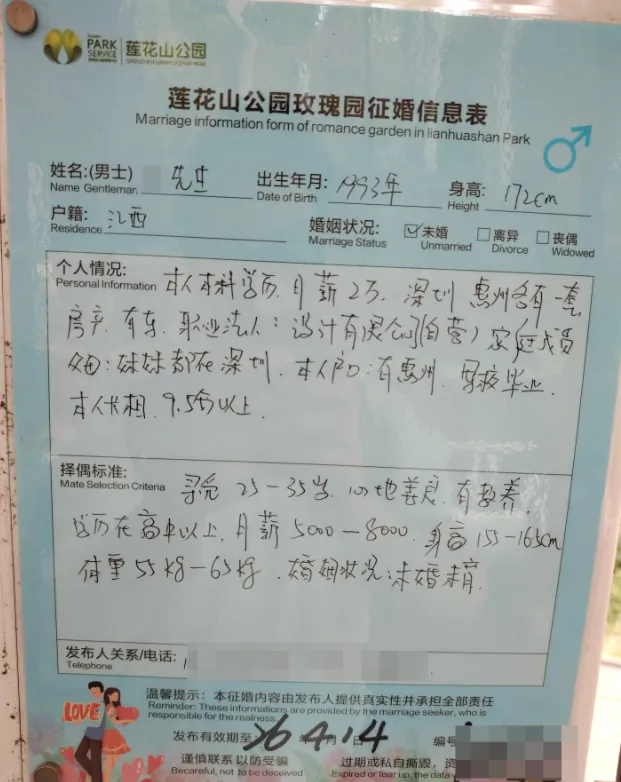 PARK
SERVICE
莲花山公园
莲花山公园玫瑰园征婚信息表
Marriage information form of romance garden in lianhuashan Park
姓名:(男士) 先生 出生年月: 1993年 身高: 172cm
Name Gentleman. Date of Birth Height
户籍: 江西 婚姻状况: ☑未婚 □离异 □丧偶
Residence Marriage Status Unmarried Divorce Widowed
个人情况:
Personal Information 本人本科学历.月薪2万. 深圳 惠州各有一套
房产.有车.职业法人:设计有限公司(自营)家庭成员
父母:妹妹都在深圳.本人户口:有惠州.毕业.
本人长相.9.5分以上.
择偶标准:
Mate Selection Criteria 寻觅 25-35岁.心地善良.有教养.
学历在高中以上.月薪5000-8000.身高155-165cm
体重55kg-65kg.婚姻状况:未婚未育.
发布人关系/电话:
Telephone
LOVE
温馨提示：本征婚内容由发布人提供真实性并承担全部责任
Reminder: These informations are provided by the marriage seeker, who is
responsible for the realness.
发布有效期至: 26 4月14日 编号
谨慎联系 以防受骗 过期或私自撕毁，资
Becareful, not to be deceived Expired or tear up, the data